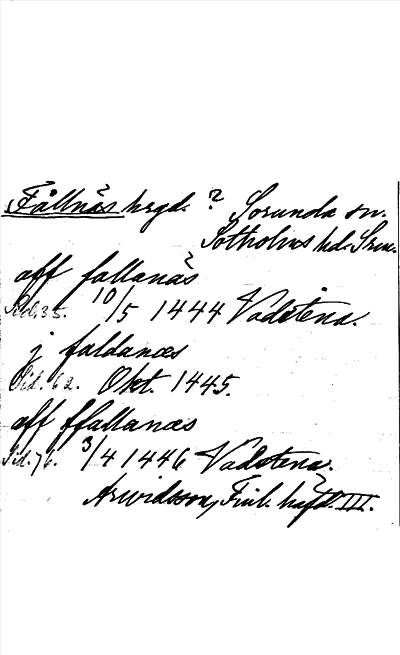 Fållnäs hrgd. ? Sorunda sn.
Sotholms hd. Srm.
aff fallanäs
Sid. 35. 10/5 1444 Vadstena.
j faldanæs
Sid. 62. Okt. 1445.
aff ffallanæs
Sid. 76. 3/4 1446 Vadstena.
Arwidsson, Finl. häfd. III.